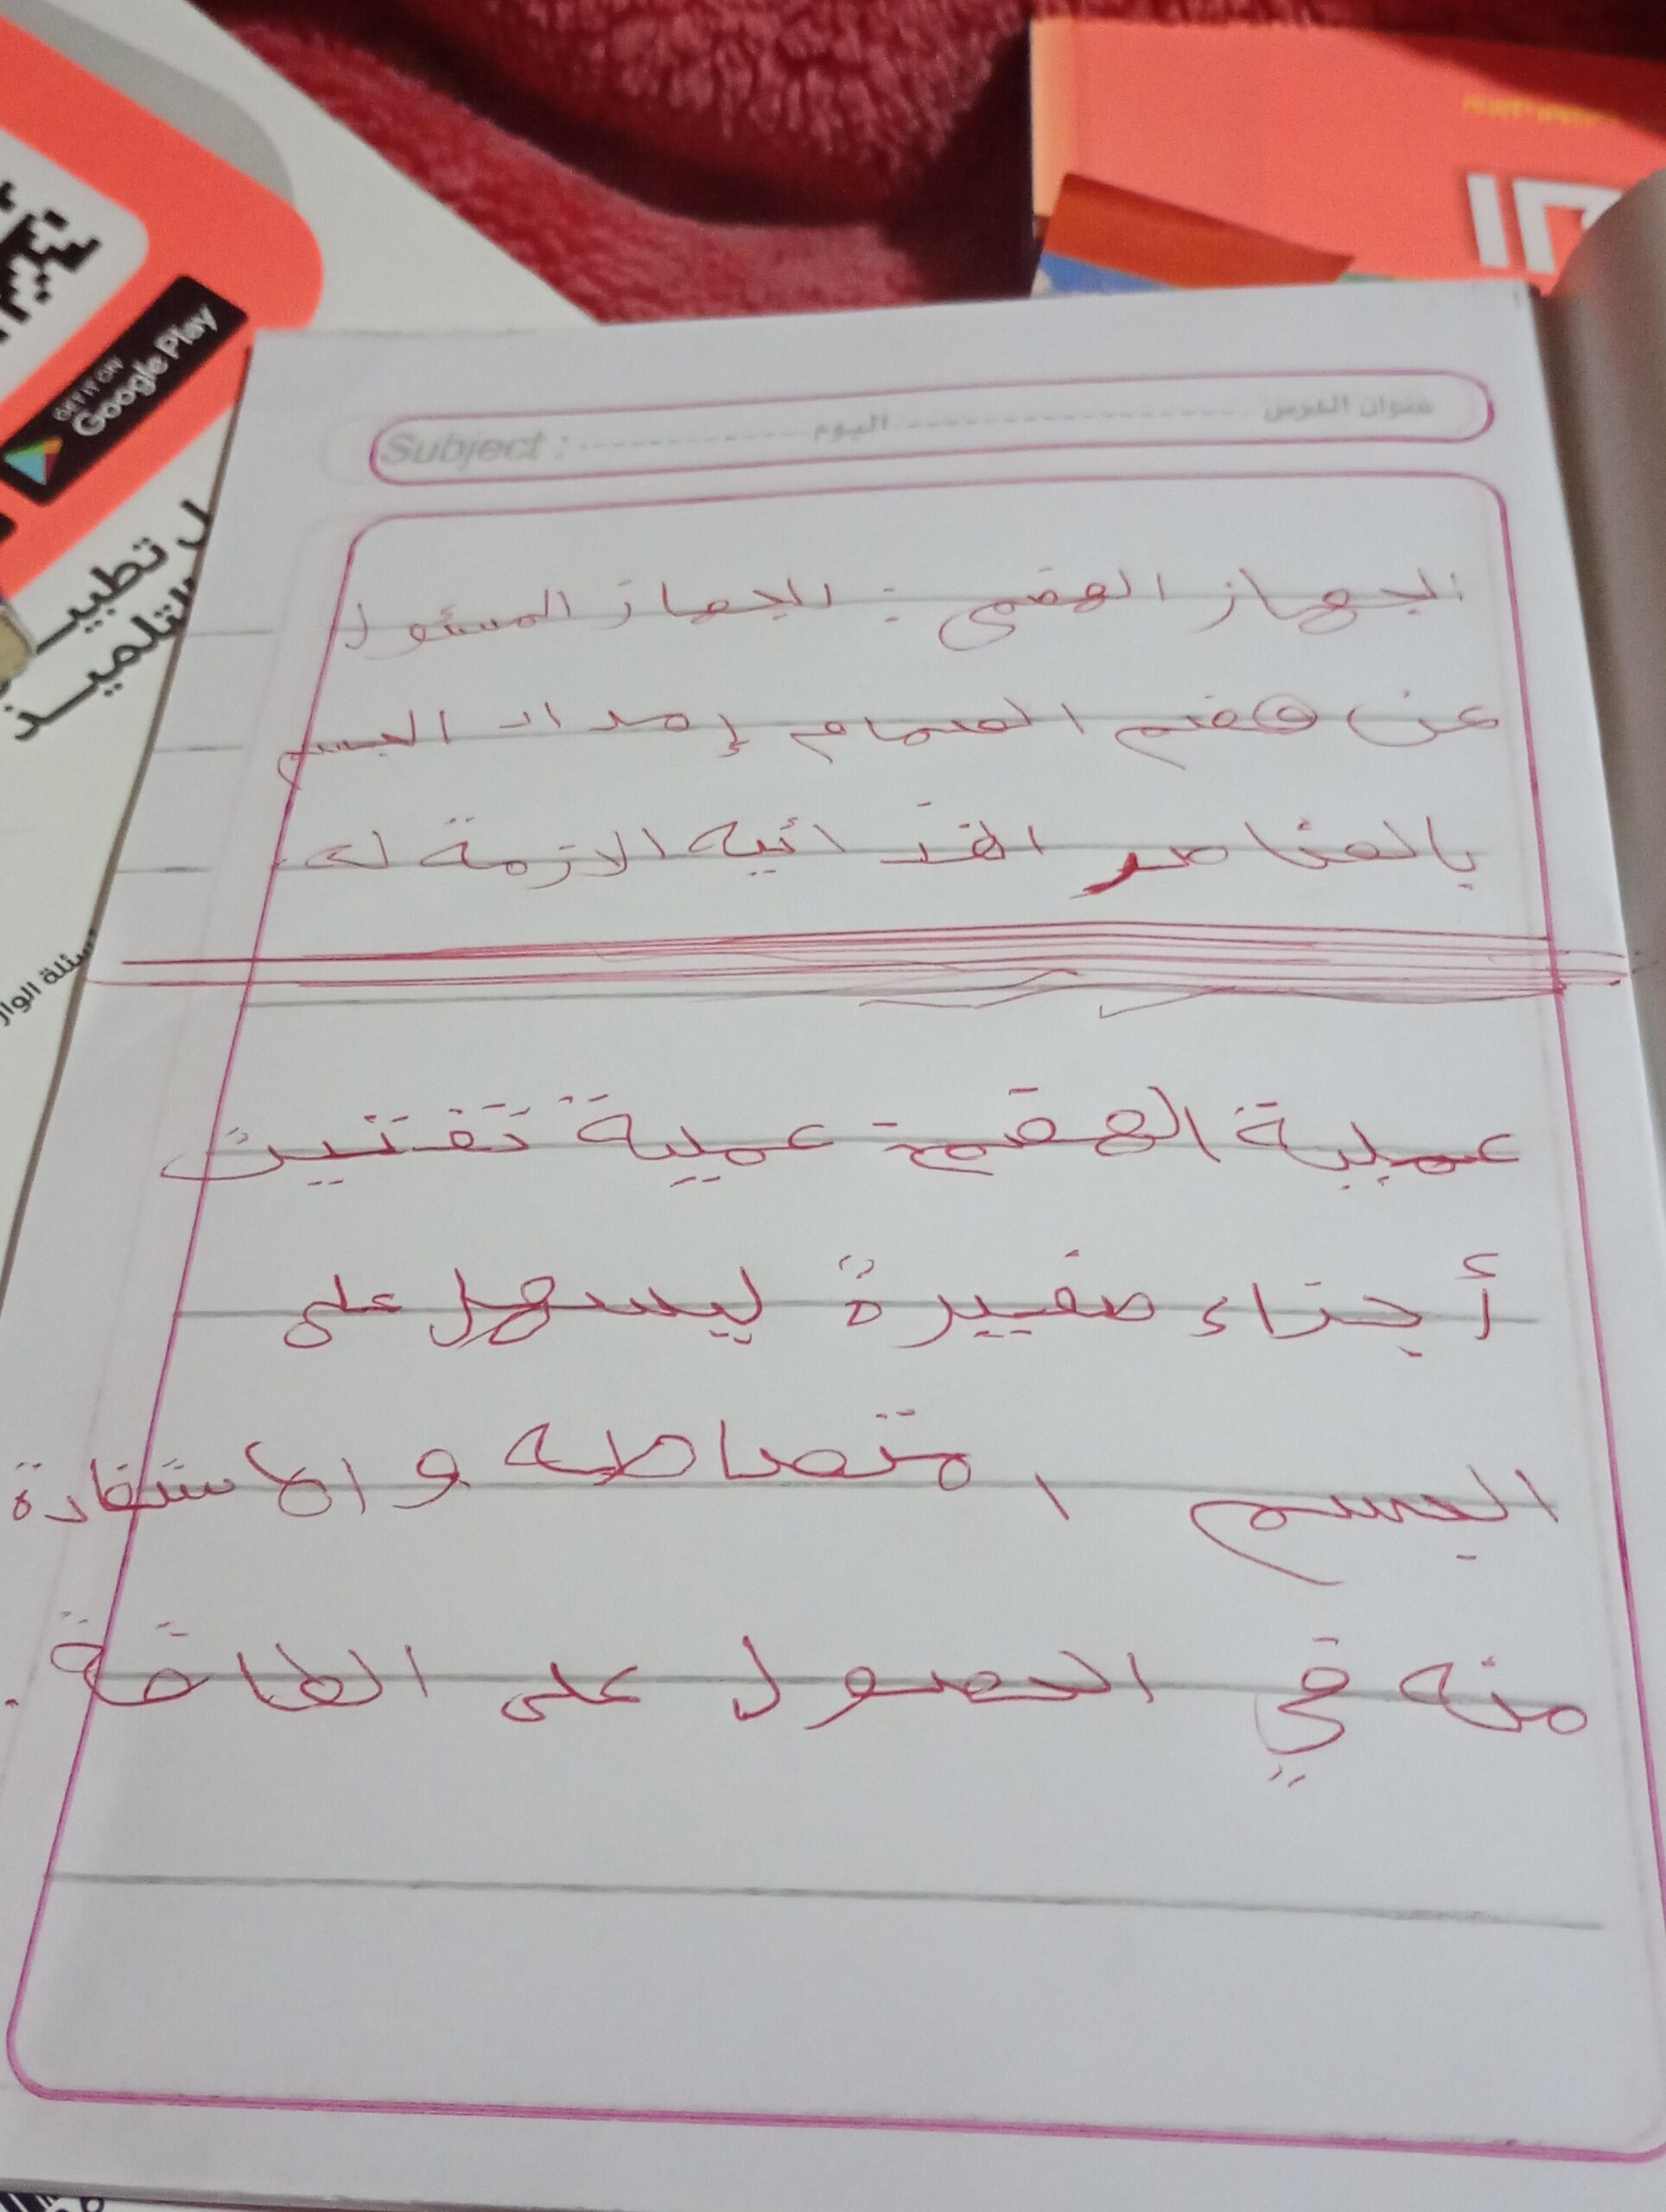 GET IT ON
Google Play
ل تطبيـ
التلميـذ
عنوان الدرس اليوم Subject :
الجهاز الهضمى : الجهاز المسئول
عن هضم الطعام إمداد الجسم
بالعناصر الغذائيه الازمة له
عملية الهضم عملية تفتيت
أجزاء صغيرة ليسهل على
الجسم امتصاطه والاستفادة
منه في الحصول على الطاقة.